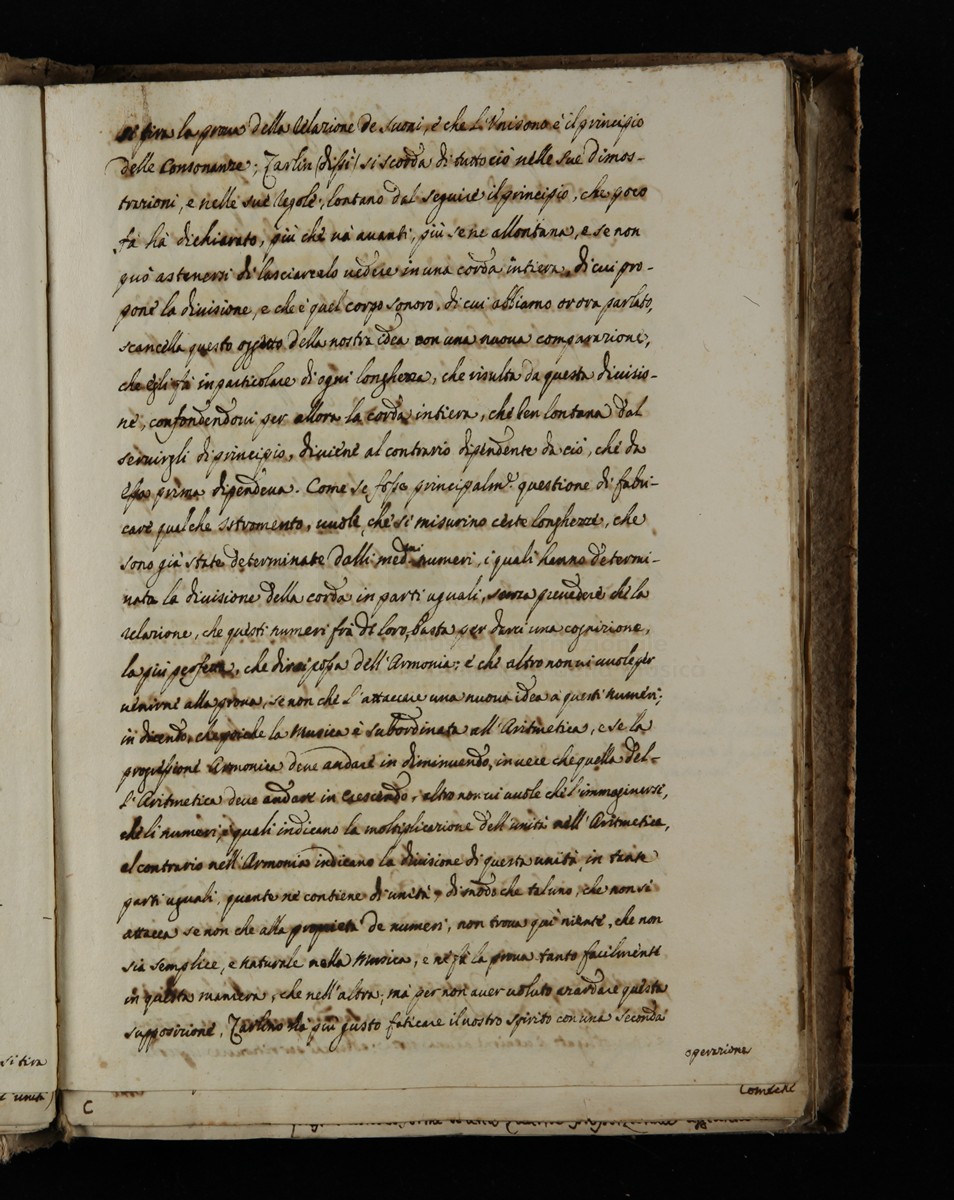 si tira la prova della Relazione de Suoni, e che L'Unisono è il principio
delle Consonanze; Zarlin (dissi) si scorda di tutto ciò nelle sue Dimos-
trazioni, e nelle sue regole, lontano dal seguire il principio, che poco
fà hà dichiarato, più che và avanti, più se ne allontana, e se non
può astenersi di lasciarcelo vedere in una corda intiera, di cui pro-
pone la divisione, e che è quel corpo sonoro, di cui abbiamo or ora parlato,
scancella questo oggetto della nostra idea con una nuova comparazione,
che egli fà in particolare di ogni longhezza, che risulta da questa divisio-
ne, confondendovi per allora la corda intiera, che ben lontana dal
servirgli di principio, diviene al contrario dipendente da ciò, che da
essa prima dipendeva. Come se fosse principalm.e questione di fabri-
care qualche istromento, vuole, che si misurino certe longhezze, che
sono già state determinate dalli med.mi numeri, i quali hanno determi-
nata la divisione della corda in parti uguali, senza prevedere che la
relazione, che questi numeri frà di loro, basta per darci una cognizione,
la più perfetta, che dirsi possa dell'Armonia; e che altro non vi vuole per
venirne alla prova, se non che l'attaccare una nuova idea a questi numeri;
in dicendo, che poiche la Musica è subordinata all'Aritmetica, e se la
progressione Armonica deve andare in diminuendo, in vece che quella del-
l'Aritmetica deve andare in crescendo, altro non vi vuole che l'immaginarsi,
che li numeri, i quali indicano la moltiplicazione dell'unità nell'Aritmetica,
al contrario nell'Armonia indicano la divisione di questa unità in tante
parti uguali, quante ne contiene di unità, di modo che taluno, che non si
attacca se non che alla proprietà de numeri, non trova qui niente, che non
sia semplice, e naturale nella Musica, e ne fà la prova tanto facilmente
in questa maniera, che nell'altra; mà per non aver voluto azardare questa
supposizione, Zarlino hà più gusto faticare il nostro spirito con una seconda
operazione
si tira
unità)
C
Comeche